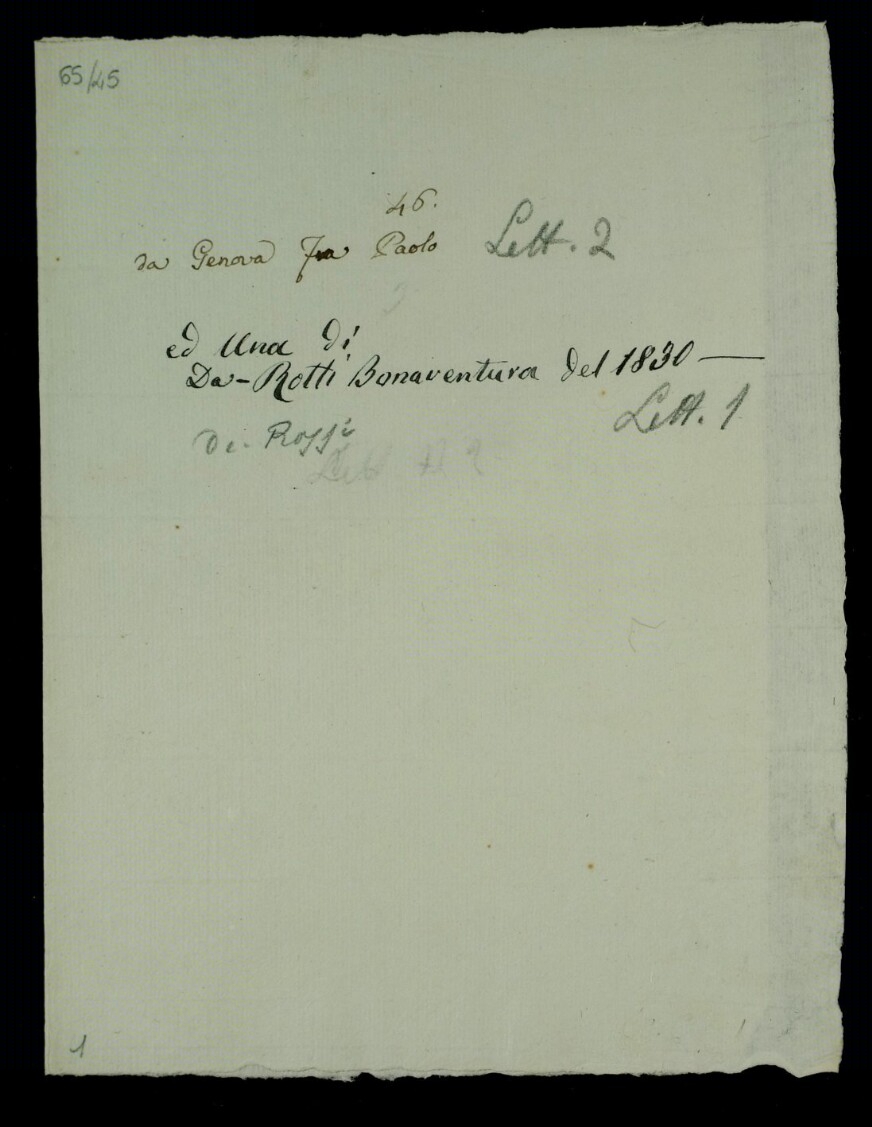 65/45
46.
da Genova Fra Paolo Lett. 2
ed Una di
Da-Rotti Bonaventura del 1830 —
Lett. 1
De. Rossi
1